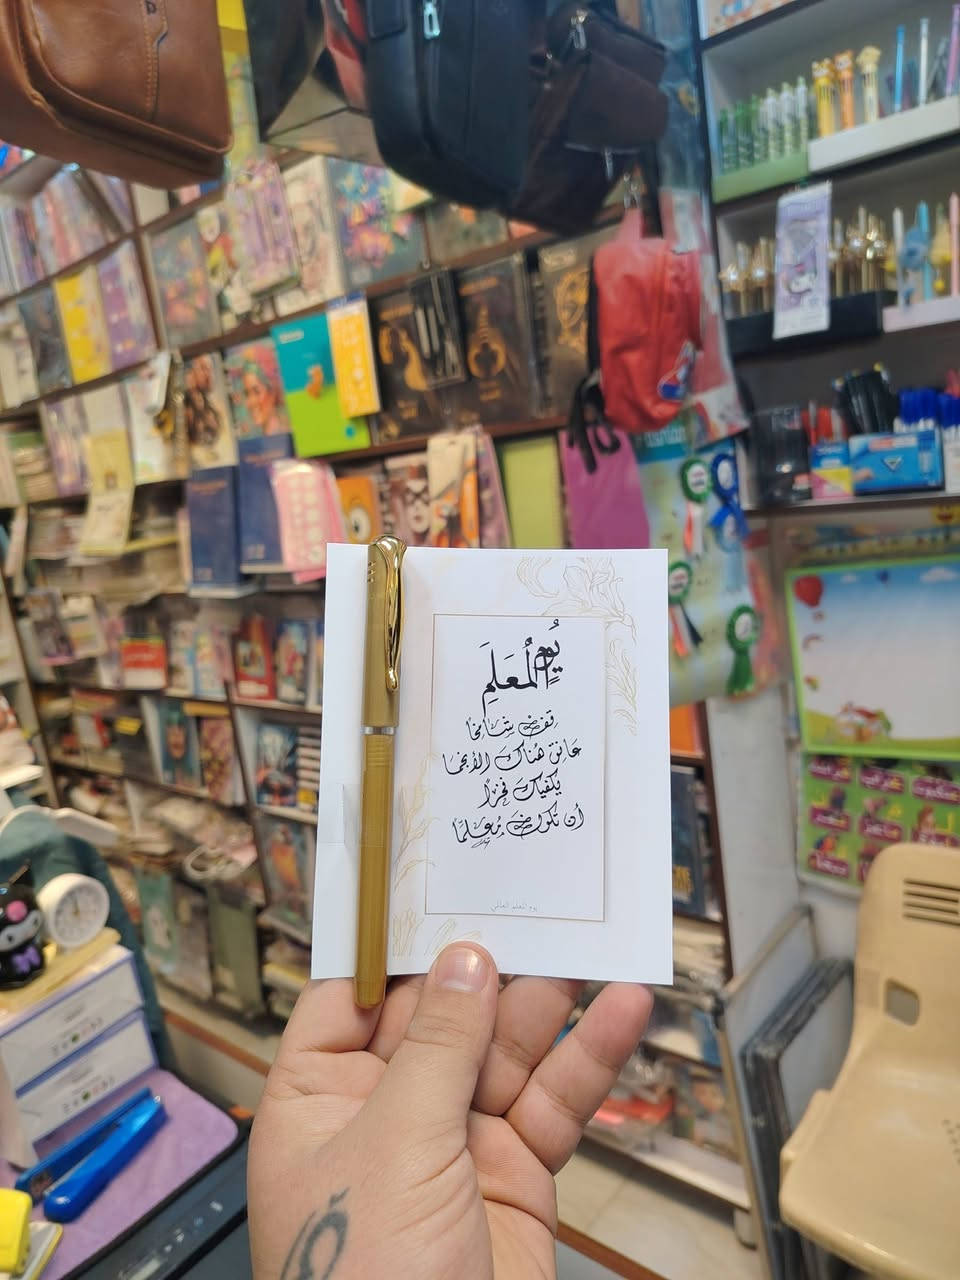 يُوم المُعَلِّمِ
قِفْ شامِخًا
عَانِق هُنَاكَ الأنجُما
يكفيك فخرًا
أن تكون مُعَلِّمًا
يوم المعلم العالمي